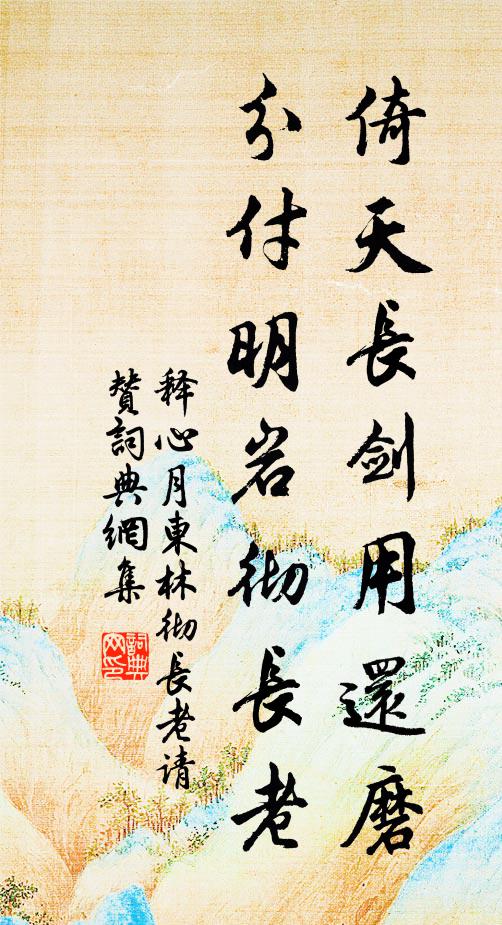 倚天長劍用還磨
分付明岩彻長老
释心月東林彻長老请
賛詞典網集
詞典网印